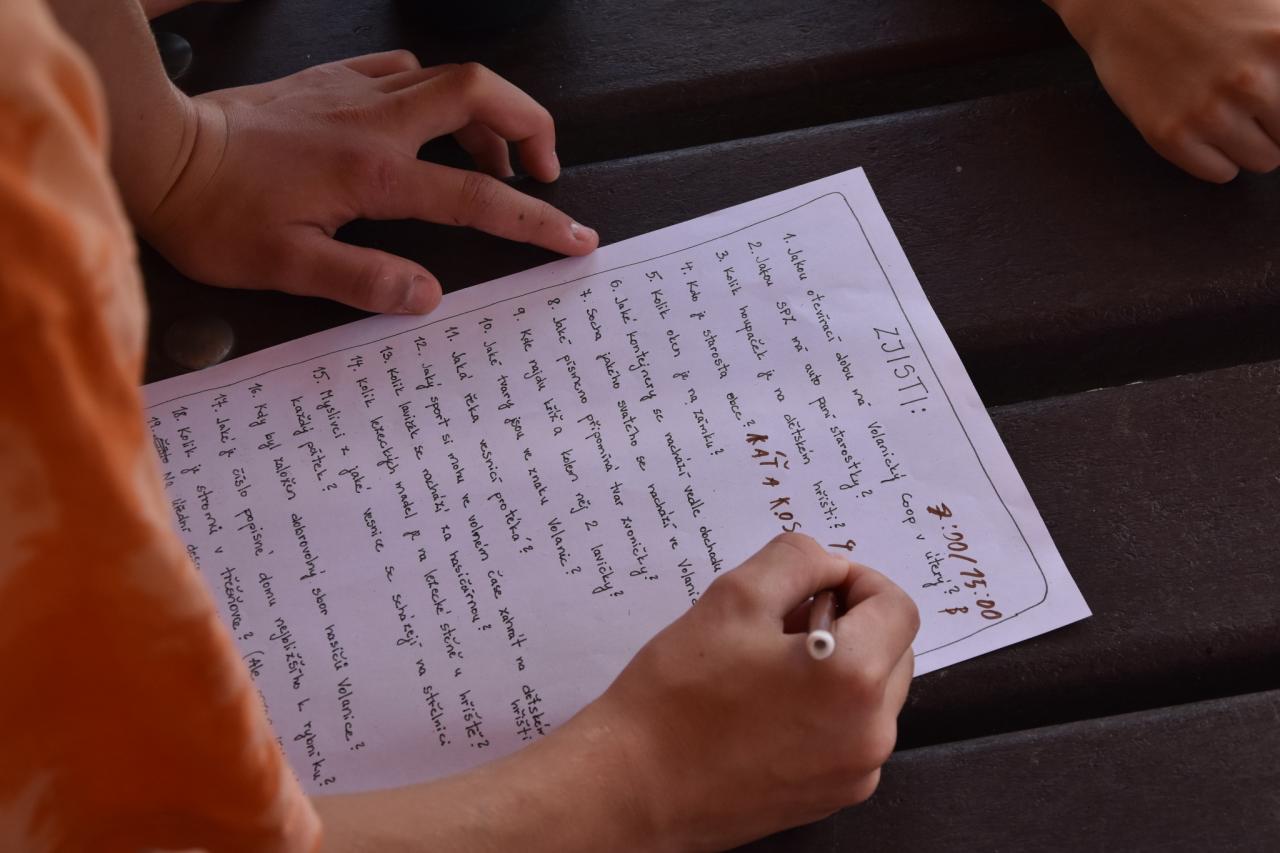 ZJISTI:
7:00/15:00
1. Jakou otevírací dobu má Volanický coop v úterý?
2. Jakou SPZ má auto paní starostky?
3. Kolik houpaček je na dětském hřišti? 4
4. Kdo je starosta obce? KÁŤA KOS
5. Kolik oken je na zámku?
6. Jaké kontejnery se nachází vedle obchodu
7. Socha jakého svatého se nachází ve
8. Jaké písmeno připomíná tvar zvoničky?
9. Kde najdu kříž a kolem něj 2 lavičky?
10. Jaké tvary jsou ve znaku Volanic?
11. Jaká řeka vesnicí protéká?
12. Jaký sport si mohu ve volném čase zahrát na dětském
hřišti
13. Kolik laviček se nachází za hasičárnou?
14. Kolik lezeckých madel je na lezecké stěně u hřiště?
15. Myslivci z jaké vesnice se scházejí na střelnici
každý pátek?
16. Kdy byl založen dobrovolný sbor hasičů Volanice?
17. Jaké je číslo popisné domu nejbližšího k rybníku?
18. Kolik je stromů v třešňovce? (Ale
19. Na úřední